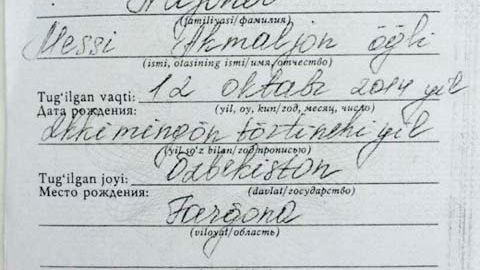 (familiyasi/фамилия)
Messi Akmaljon o'g'li
(ismi, otasining ismi/имя, отчество)
Tug'ilgan vaqti: 12 oktabr 2014 yil
Дата рождения: (yil, oy, kun/год, месяц, число)
Ikki ming o'n to'rtinchi yil
(yil so'z bilan/год прописью)
Tug'ilgan joyi: O'zbekiston
Место рождения: (davlat/государство)
Farg'ona
(viloyat/область)